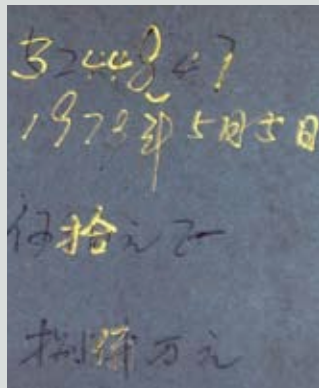 3244847
1978年5月5日
伍拾元正
捌仟万元